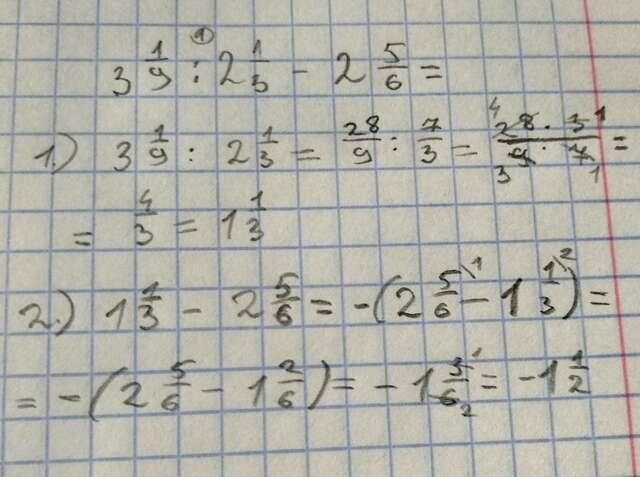 3 1/9 : ① 2 1/3 - 2 5/6 =
1.) 3 1/9 : 2 1/3 = 28/9 : 7/3 = 4 28 · 3 1 / 3 9 · 7 1 =
= 4/3 = 1 1/3
2.) 1 1/3 - 2 5/6 = -(2 5/6 \1 - 1 1/3 \2) =
= -(2 5/6 - 1 2/6) = -1 3 1/6 2 = -1 1/2